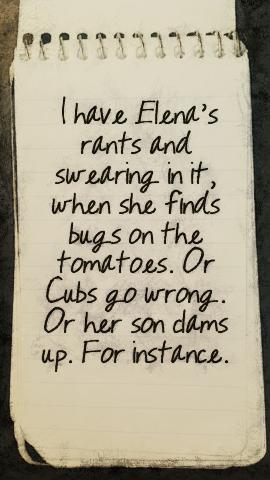 I have Elena's
rants and
swearing in it,
when she finds
bugs on the
tomatoes. Or
Cubs go wrong.
Or her son dams
up. For instance.